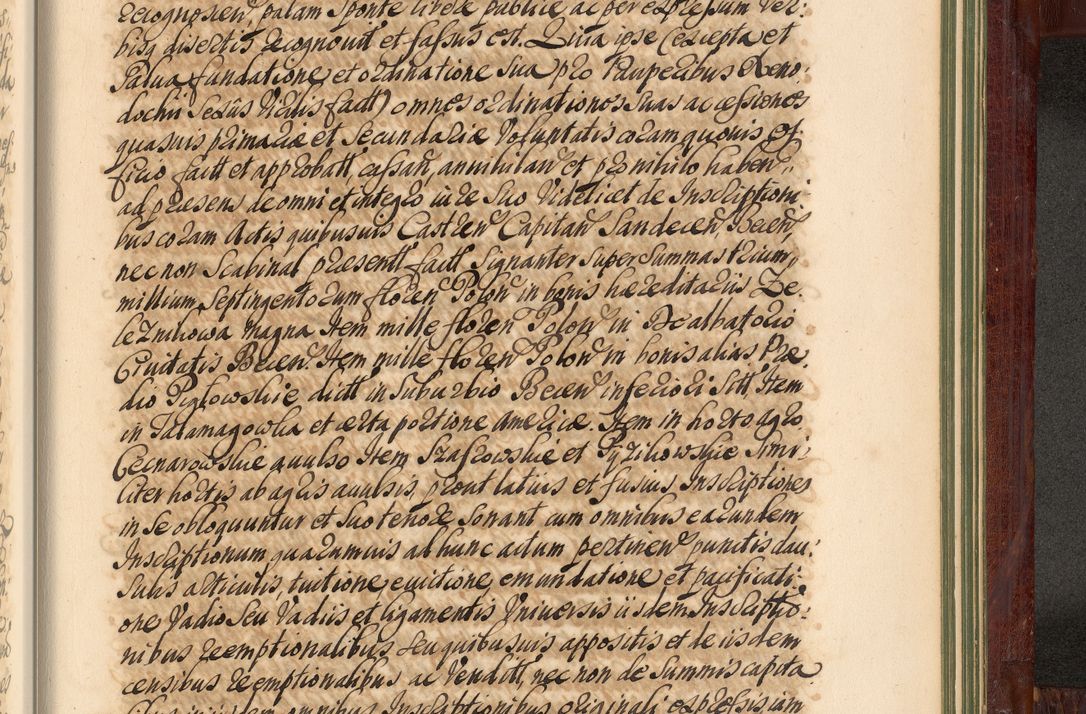 recognoscen, palam sponte libere publice ac per expressum ver:
bisq disertis recognouit et fassus est. Quia ipse (excepta et
salua fundatione et ordinatione sua pro Pauperibus Xeno
dochii Sexus Virilis fact) omnes ordinationes suas ac cessiones
quasuis primariæ et secundariæ Voluntatis coram quouis of
ficio fact et approbatt, cassan, annihilan et pro nihilo haben,
ad præsens de omni et integro iure suo Videlicet de Inscriptioni
bus coram Actis quibusuis Castren Capitan Sandecen Becen,
nec non Scabinal præsentt fact signanter super summas trium,
millium Septingentorum floren Polon in bonis hæreditariis Ze.
leznikowa magna Item mille floren Polon in Dealbatorio
Ciuitatis Becen. Item mille floren Polon in bonis alias Præ
dio Pigłowskie dictt in suburbio Becen inferiori Sitt, Item
in Taramagowka et certa portione americæ. Item in horto agro
Cecnarowskie auulso Item Szafrowskie et Pyzikowskie Simi:
liter hortis ab agris auulsis, prout latius et fusius Inscriptiones
in se obloquuntur et suo tenore sonant cum omnibus earundem
Inscriptionum quarumuis ad hunc actum pertinen punctis clau:
sulis articulis, tuitione euictione emundatione et pacificati:
one Vadio seu Vadiis et ligamentis Vniuersis iisdem Inscriptio:
nibus reemptionalibus seu quibusuis appositis et de iisdem
censibus reemptionalibus ac Venditt, nec non de summis capita
omnibus Inscriptionibus originali expressis iam